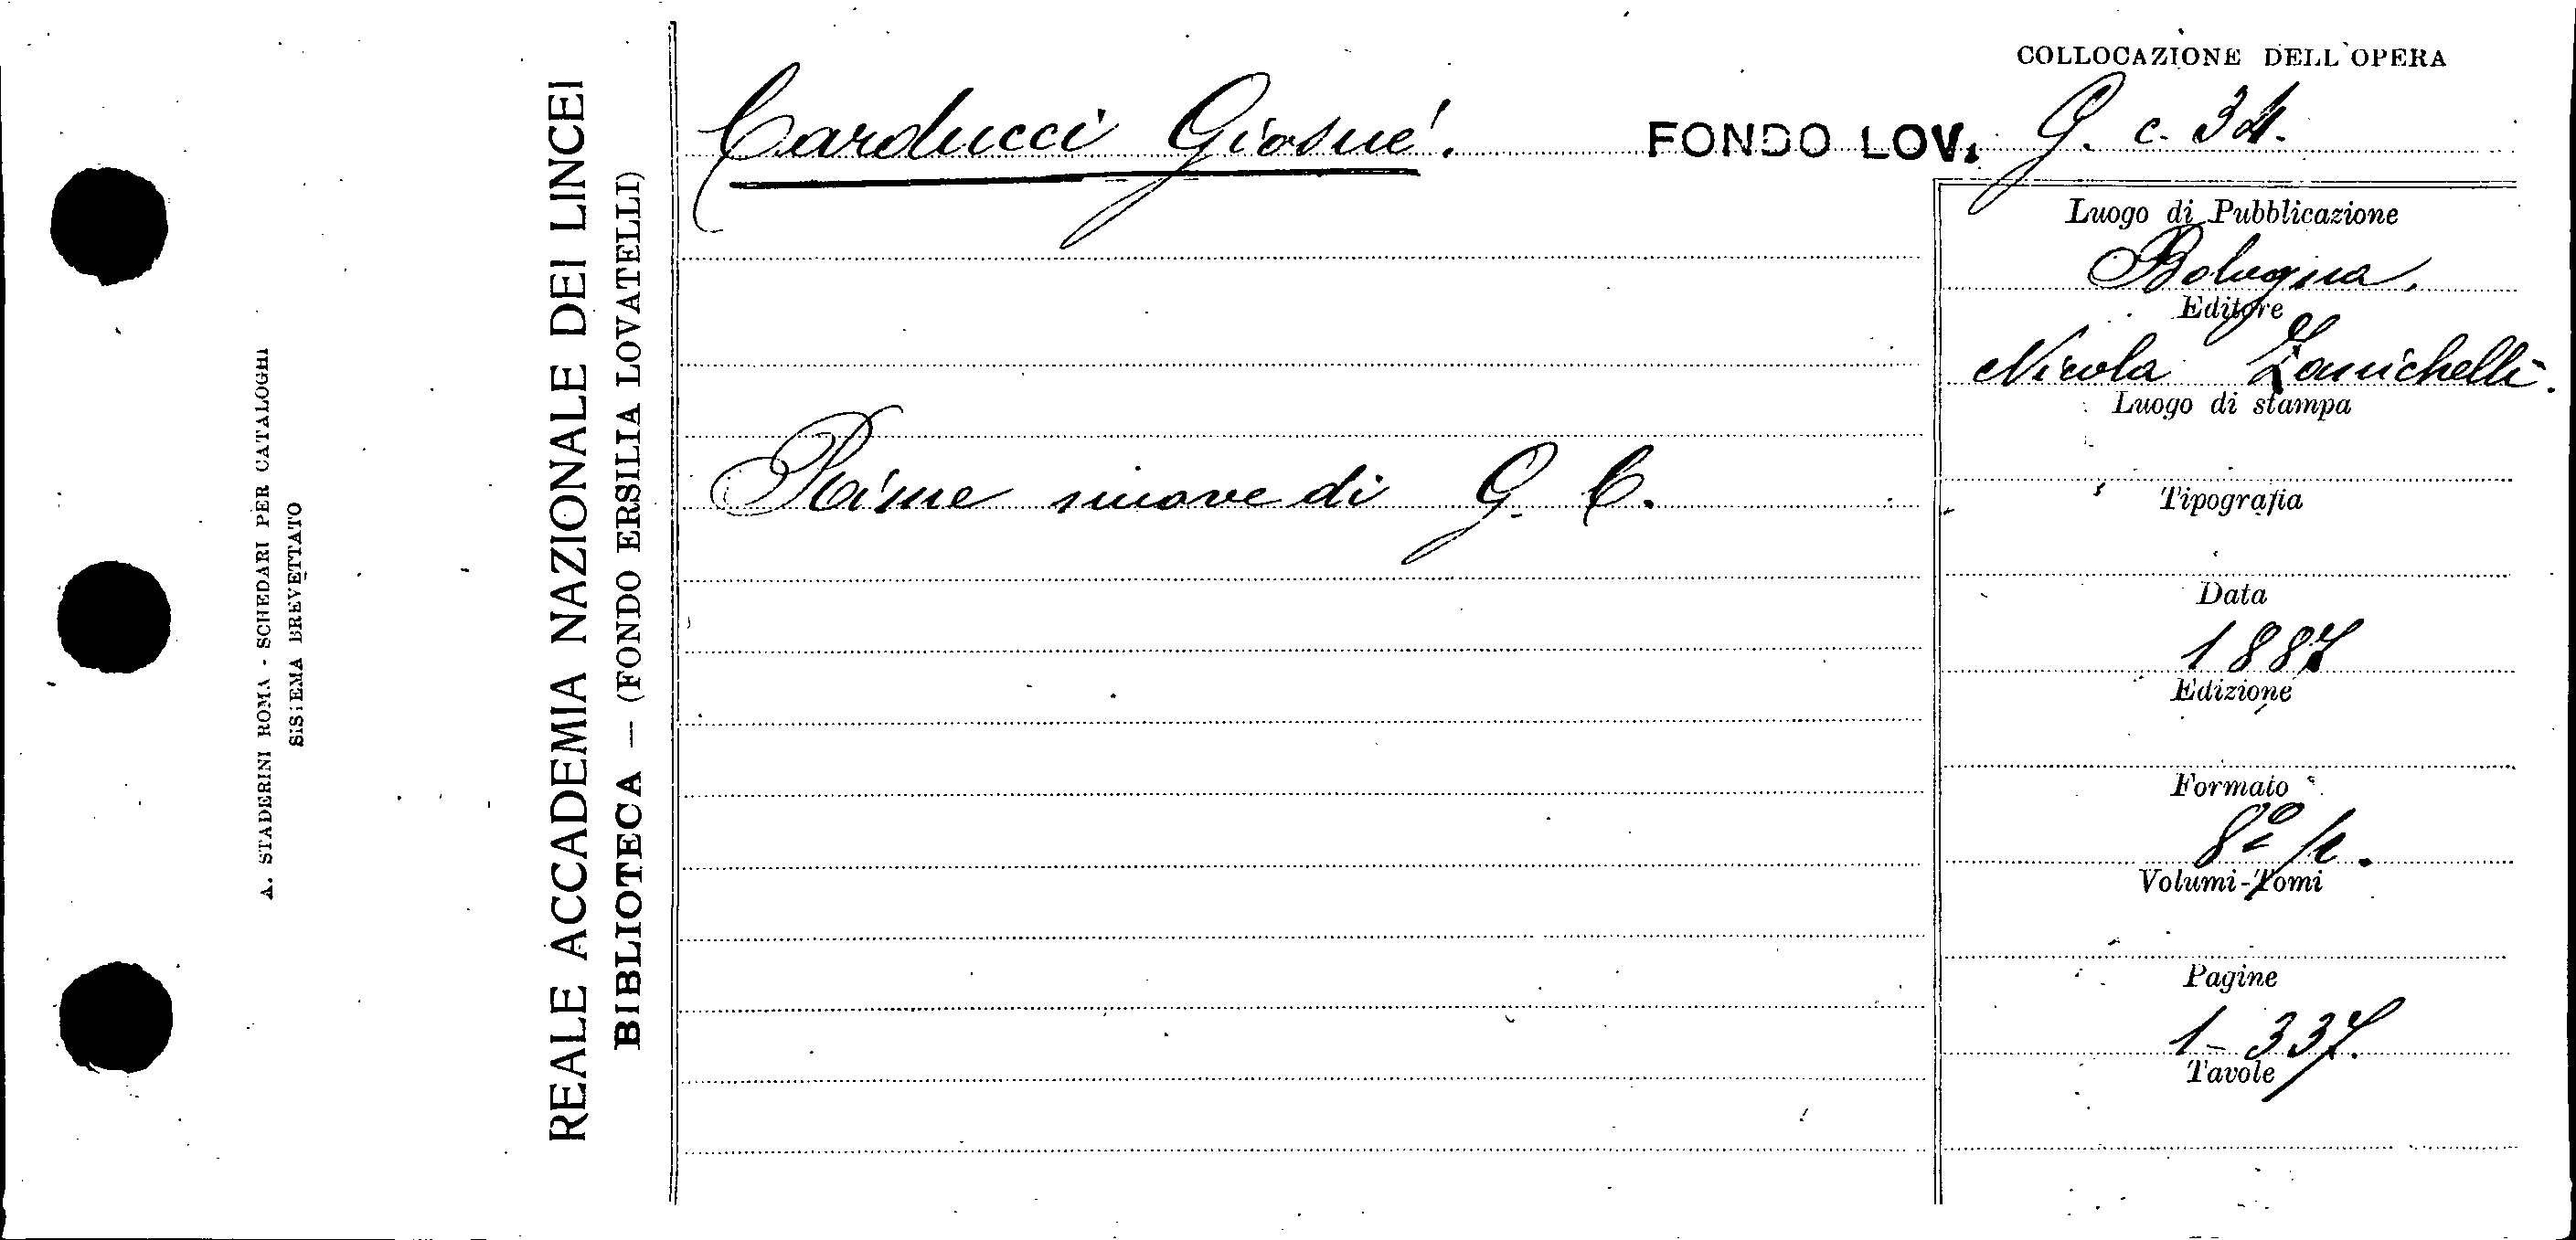 A. STADERINI ROMA - SCHEDARI PER CATALOGHI
SISTEMA BREVETTATO
REALE ACCADEMIA NAZIONALE DEI LINCEI
BIBLIOTECA — (FONDO ERSILIA LOVATELLI)
COLLOCAZIONE DELL'OPERA
Carducci Giosué. FONDO LOV. G. c. 34.
Luogo di Pubblicazione
Bologna.
Editore
Nicola Zanichelli.
Luogo di stampa
Rime nuove di G. C.
Tipografia
Data
1887
Edizione
Formato
8º
Volumi-Tomi
Pagine
1-337.
Tavole